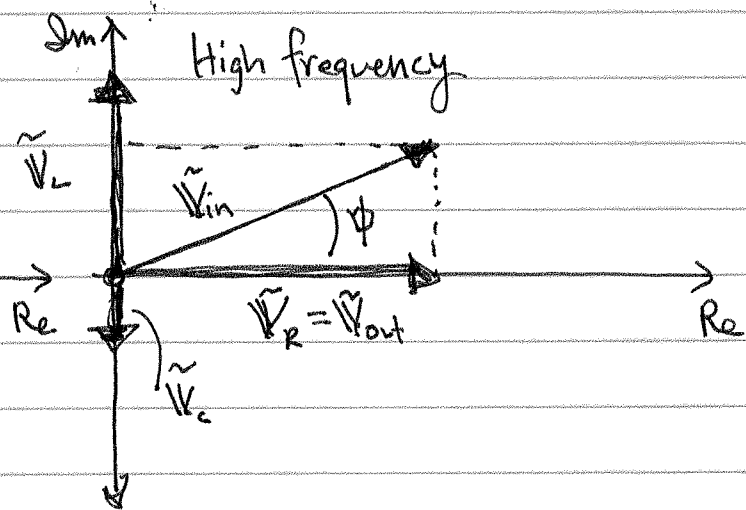 Im
High frequency
Ṽ_L
Ṽ_in
ϕ
Re
Ṽ_R = Ṽ_out
Re
Ṽ_c